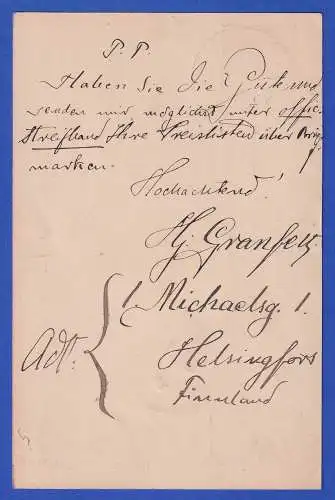 P. P.
Haben Sie die Güte und
senden mir möglichst unter offe
Streifband Ihre Preislisten über Brief
marken.
Hochachtend!
Hj. Granfelt
1. Michaelsg. 1.
Adr.
Helsingfors
Finnland